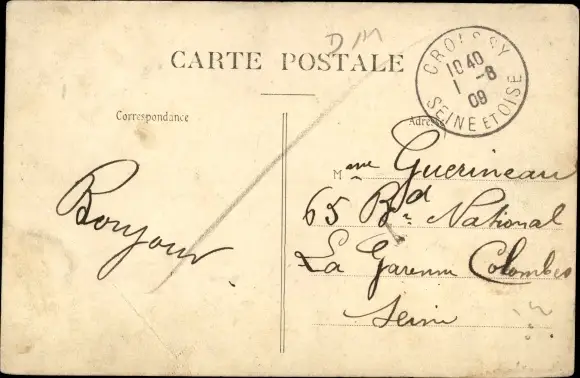 DM
CARTE POSTALE
CROISSY
18 40
1 -8
09
SEINE ET OISE
Correspondance
Adresse
Bonjour
Mme Guerineau
65 Bd National
La Garenne Colombes
Seine